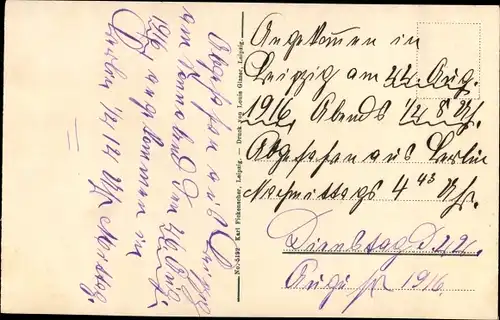 Angekommen in
Leipzig am 22. Aug.
1916, Abends 1/2 8 Uh.
Abgefahren aus Berlin
Nachmittags 4 45 Uhr.
Dienstag d. 22.
August 1916.
Abgefahren aus Leipzig
am Sonnabend den 26. Aug.
1916 angekommen in
Berlin 1/2 Uhr Mittag.
Karl Pickenacher, Leipzig. — Druck von Louis Glaser, Leipzig.